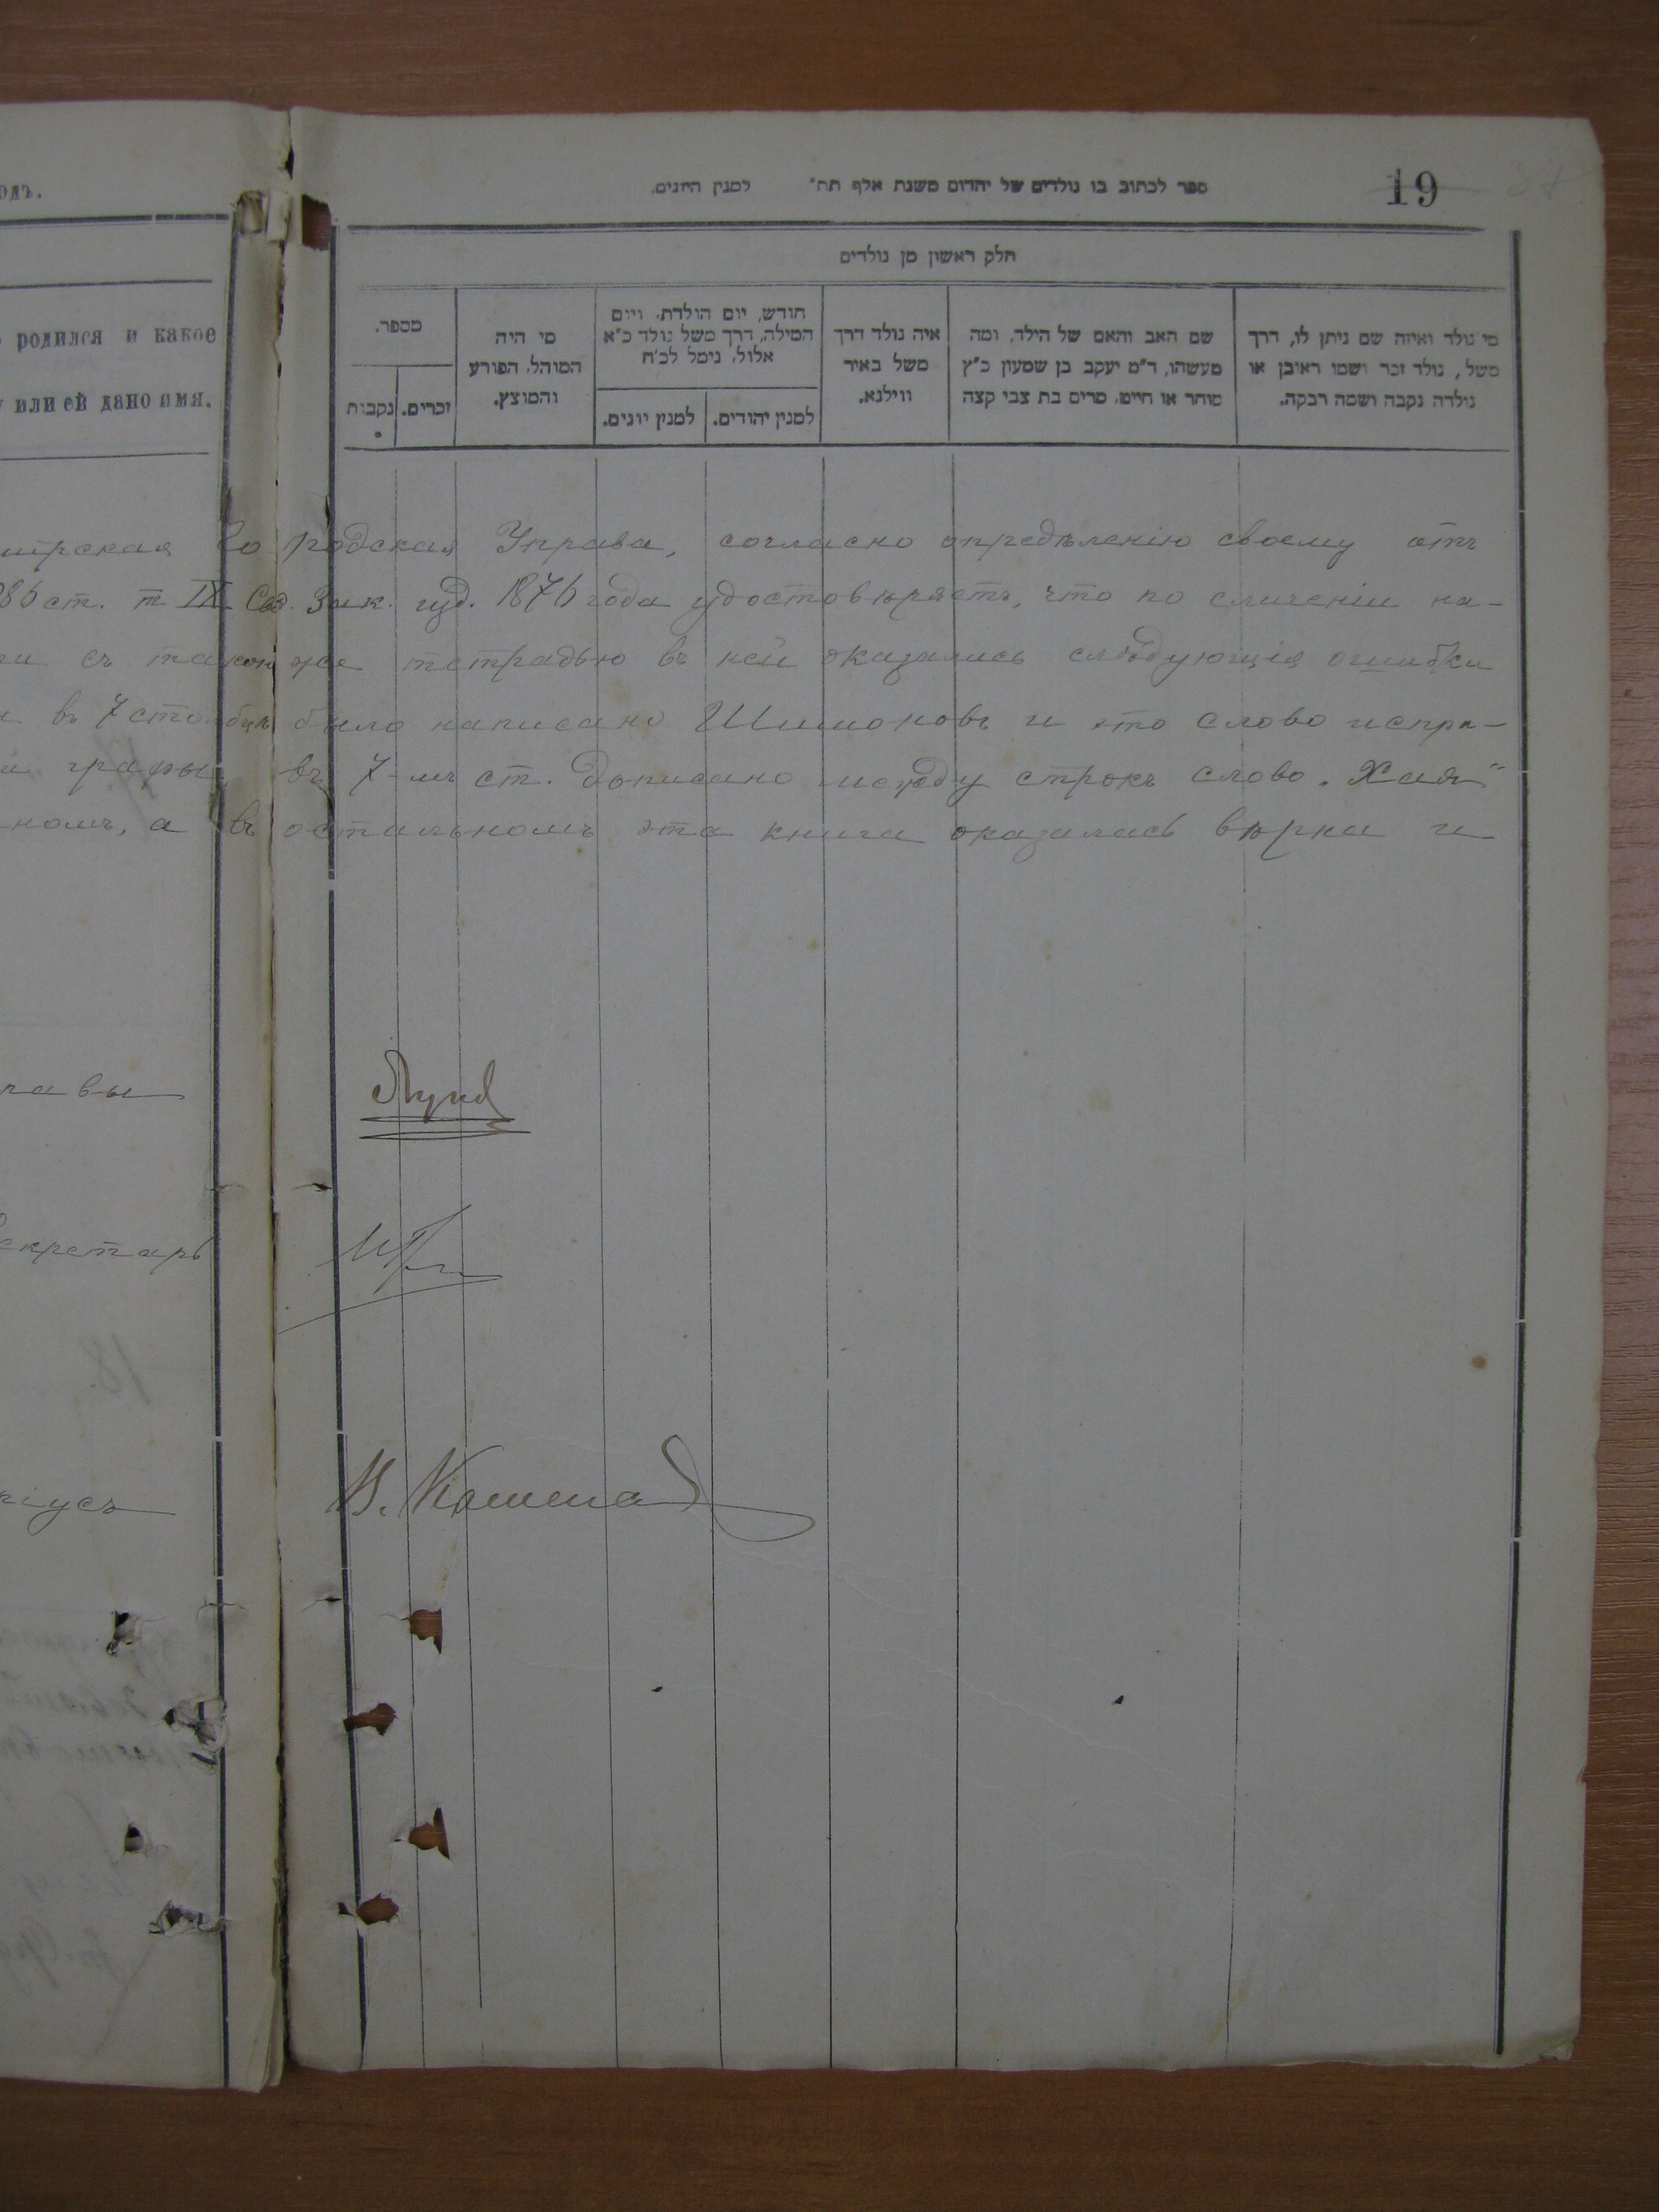 одъ.
родился и какое
или ей дано имя.
ספר לכתוב בו נולדים של יהדום משנת אלף תת״ למנין היונים.
19
חלק ראשון מן נולדים
מי נולד ואיזה שם ניתן לו, דרך
משל, נולד זכר ושמו ראובן או
נולדה נקבה ושמה רבקה.
שם האב והאם של הילד, ומה
מעשהו, ד״מ יעקב בן שמעון כ״ץ
סוחר או חייט, מרים בת צבי קצה
איה נולד דרך
משל באיר
ווילנא.
חודש, יום הולדת, ויום
המילה, דרך משל נולד כ״א
אלול, נימל לכ׳ח
למנין יהודים.
למנין יונים.
מי היה
המוהל, הפורע
והמוצץ.
מספר.
זכרים.
נקבות
ирская Городская Управа, согласно опредѣленію своему отъ
86 ст. т IX Свд. Зак. изд. 1876 года удостовѣряетъ, что по сличеніи на-
ри съ таковой же тетрадью въ ней оказались слѣдующія ошибки
въ 7 столбцѣ было написано Шимоновъ и это слово испра-
й графы въ 7-мъ ст. дописано между строкъ слово „Хая"
номъ, а въ остальномъ эта книга оказалась вѣрна и
равы
екретарь
18.
ріусъ